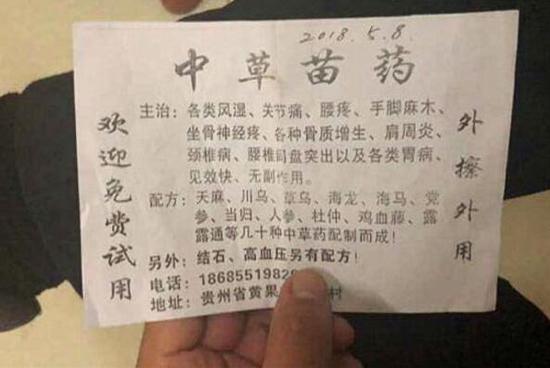 2018.5.8.
中草苗药
欢迎免费试用
主治：各类风湿、关节痛、腰疼、手脚麻木、
坐骨神经疼、各种骨质增生、肩周炎、
颈椎病、腰椎间盘突出以及各类胃病，
见效快、无副作用。
配方：天麻、川乌、草乌、海龙、海马、党
参、当归、人参、杜仲、鸡血藤、露
露通等几十种中草药配制而成！
另外：结石、高血压另有配方！
电话：1868551982
地址：贵州省黄果 村
外擦外用